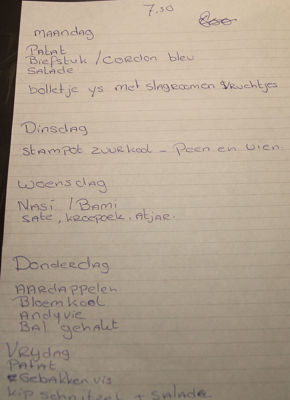 7.50
MAANDAG
Patat
Biefstuk / Cordon bleu
Salade
bolletje ys met slagroomen vruchtjes
Dinsdag
Stampot zuurkool - Peen en uien.
Woensdag
Nasi / Bami
Sate, kroepoek, Atjae.
Donderdag
AARDAPPELEN
Bloemkool
Andyvie
Bal gehakt
Vrydag
Patat
Gebakken vis
kip schnitzel + salade